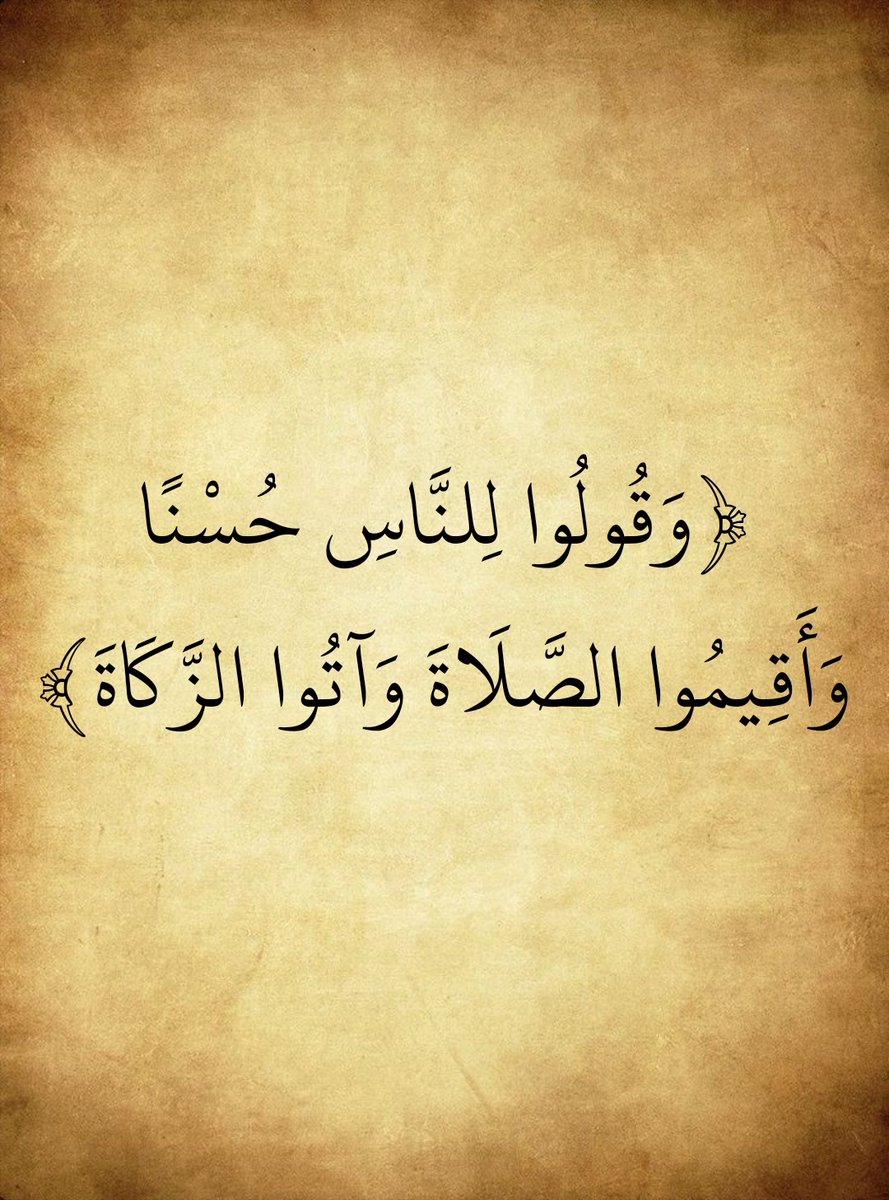 ﴿وَقُولُوا لِلنَّاسِ حُسْنًا
وَأَقِيمُوا الصَّلَاةَ وَآتُوا الزَّكَاةَ﴾